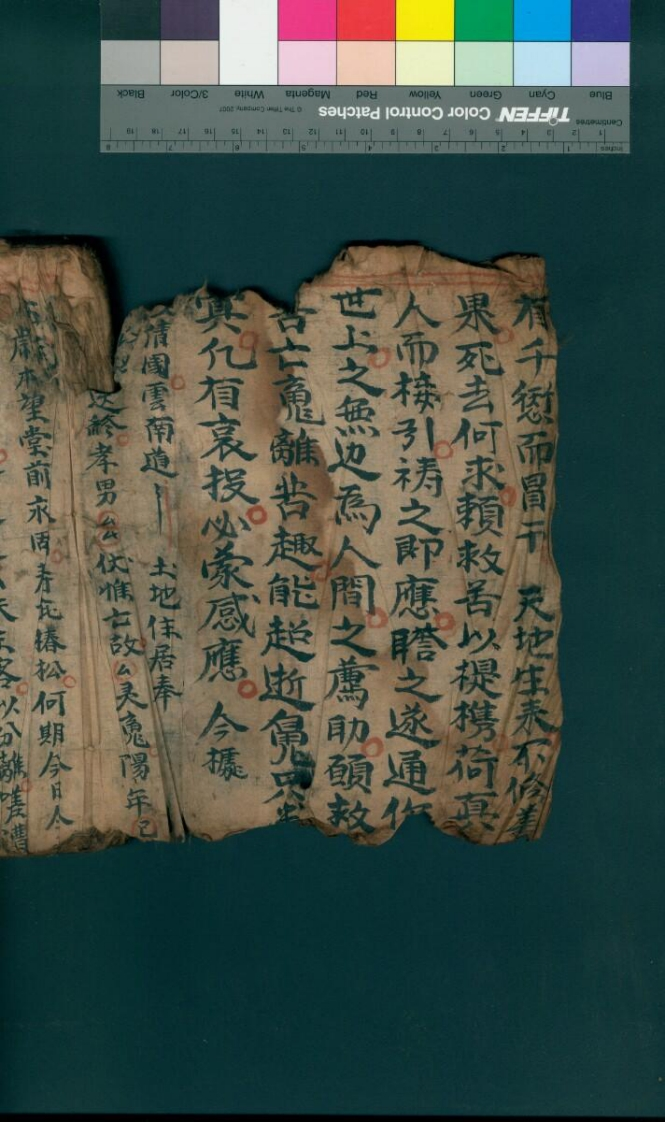 有千愆而冒干 天地生来不修善
果死去何求頼救苦以提携荷真
人而接引祷之即應瞻之遂通作
世上之無边為人間之薦助願救
苦亡䰟離苦趣能超逝䰟
冥仉有哀投必蒙感應 今據
清國雲南道 土地住居奉
齡孝男厶伏惟亡故厶灵䰟陽年已
歲本望堂前永固寿比椿松何期今日
客以分離嗟
Blue Cyan Green Yellow Red Magenta White 3/Color Black
TIFFEN Color Control Patches
© The Tiffen Company, 2007
Centimetres
Inches